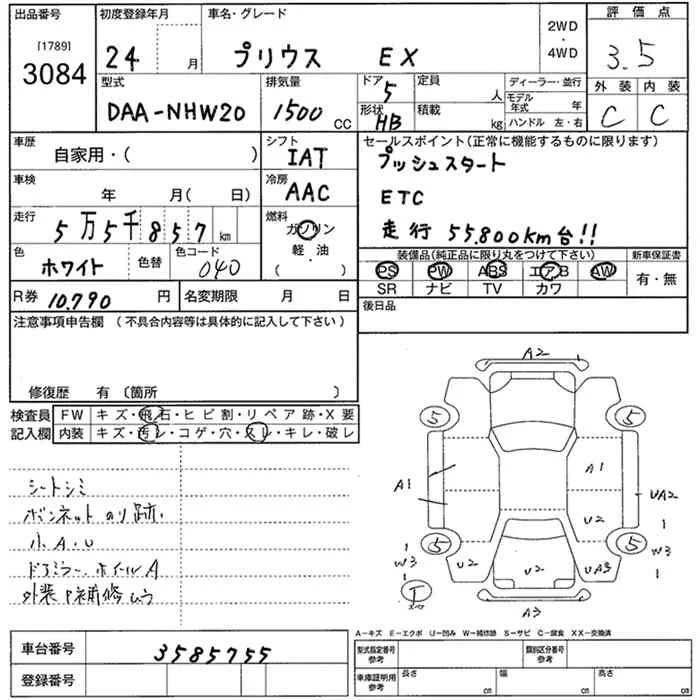 出品番号
[1789]
3084
初度登録年月
24 年 月
車名・グレード
プリウス EX
2WD
・
4WD
評価点
3.5
外装 内装
C C
型式
DAA-NHW20
排気量
1500 CC
ドア
5
形状
HB
定員
人
積載
kg
ディーラー・並行
モデル年式 年
ハンドル 左・右
車歴
自家用・( )
シフト
IAT
車検
年 月( 日)
冷房
AAC
走行
5万5千857 km
燃料
ガソリン
軽・油
( )
色
ホワイト
色替
色コード
040
セールスポイント(正常に機能するものに限ります)
プッシュスタート
ETC
走行 55,800km台!!
装備品(純正品に限り丸をつけて下さい)
新車保証書
PS PW ABS エアB AW
SR ナビ TV カワ
有・無
R券 10,790 円
名変期限 月 日
後日品
注意事項申告欄 (不具合内容等は具体的に記入して下さい)
修復歴 有〔箇所 〕
検査員
記入欄
FW キズ・飛石・ヒビ割・リペア跡・X要
内装 キズ・汚レ・コゲ・穴・スレ・キレ・破レ
シートシミ
ボンネットのり跡
小A.U
ドアミラー ホイールA
外装P補修ムラ
A2
5 5
A1
A1
UA2
U2
5 5
W3
W3
U2
U2
UA3
T
A3
A-キズ E-エクボ U-凹み W-補修跡 S-サビ C-腐食 XX-交換済
車台番号
3585755
登録番号
型式指定番号
参考
類別区分番号
参考
車庫証明用
参考
長さ cm
幅 cm
高さ cm